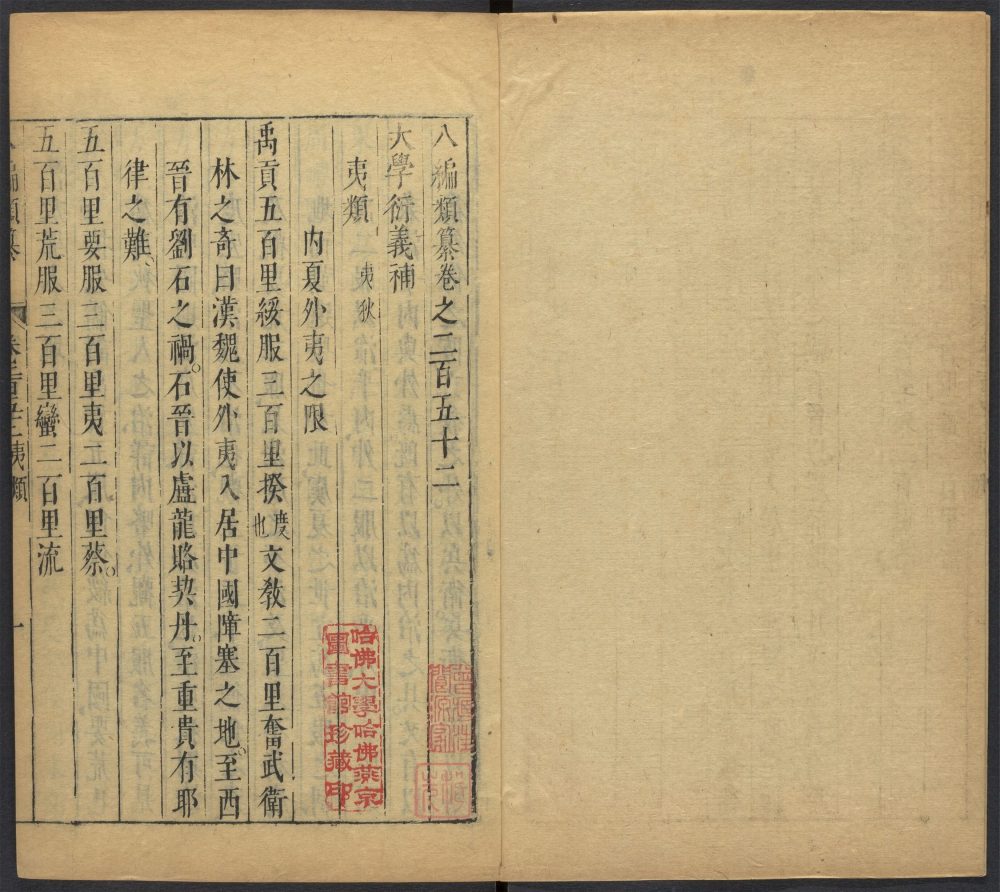 八編類纂卷之二百五十二
大學衍義補
夷類 夷狄
內夏外夷之限
禹貢五百里綏服三百里揆度也文敎二百里奮武衛
林之奇曰漢魏使外夷入居中國障塞之地至西
晉有劉石之禍。石晉以盧龍賂契丹。至重貴有耶
律之難、
五百里要服三百里夷二百里蔡。
五百里荒服三百里蠻二百里流
八編類纂 夷類 一
哈佛大學哈佛燕京
圖書館珍藏印